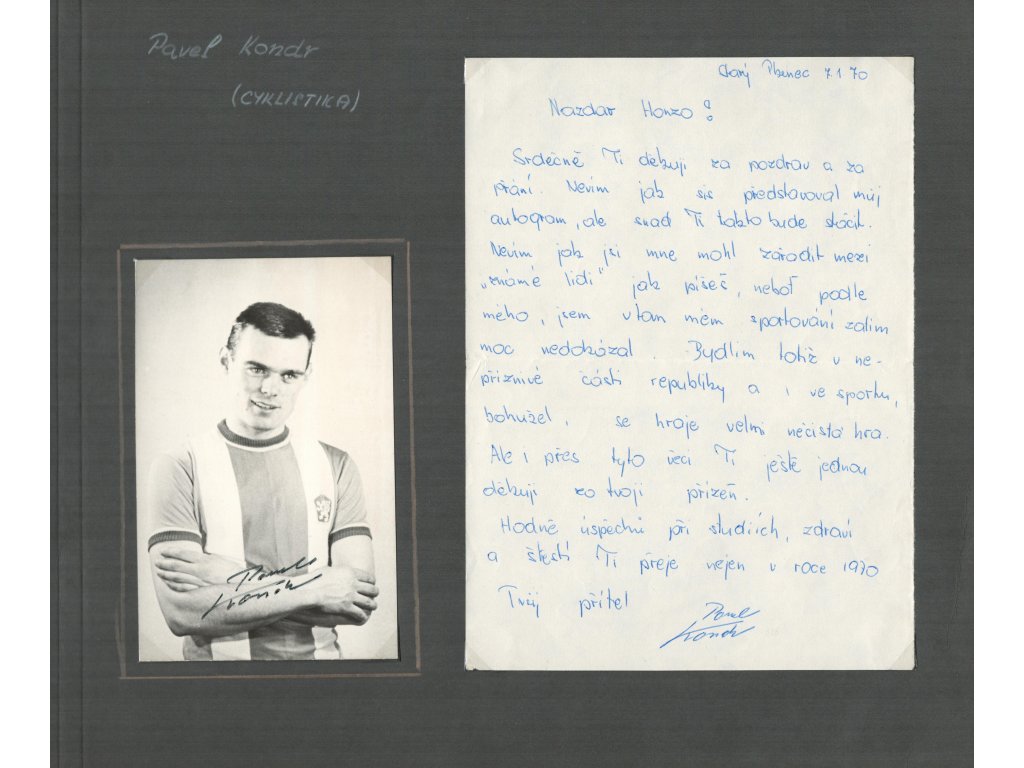 Pavel Kondr
(CYKLISTIKA)
Starý Plzenec 7 1 70
Nazdar Honzo!
Srdečně Ti děkuji za pozdrav a za
přání. Nevím jak sis představoval můj
autogram, ale snad Ti takto bude stačit.
Nevím jak jsi mne mohl zařadit mezi
„známé lidi" jak píšeš, neboť podle
mého, jsem v tom mém sportování zatím
moc nedokázal. Bydlím totiž v ne-
příznivé části republiky a i ve sportu,
bohužel, se hraje velmi nečistá hra.
Ale i přes tyto věci Ti ještě jednou
děkuji za tvoji přízeň.
Hodně úspěchů při studiích, zdraví
a štěstí Ti přeje nejen v roce 1970
Tvůj přítel
Pavel
Kondr
Pavel
Kondr